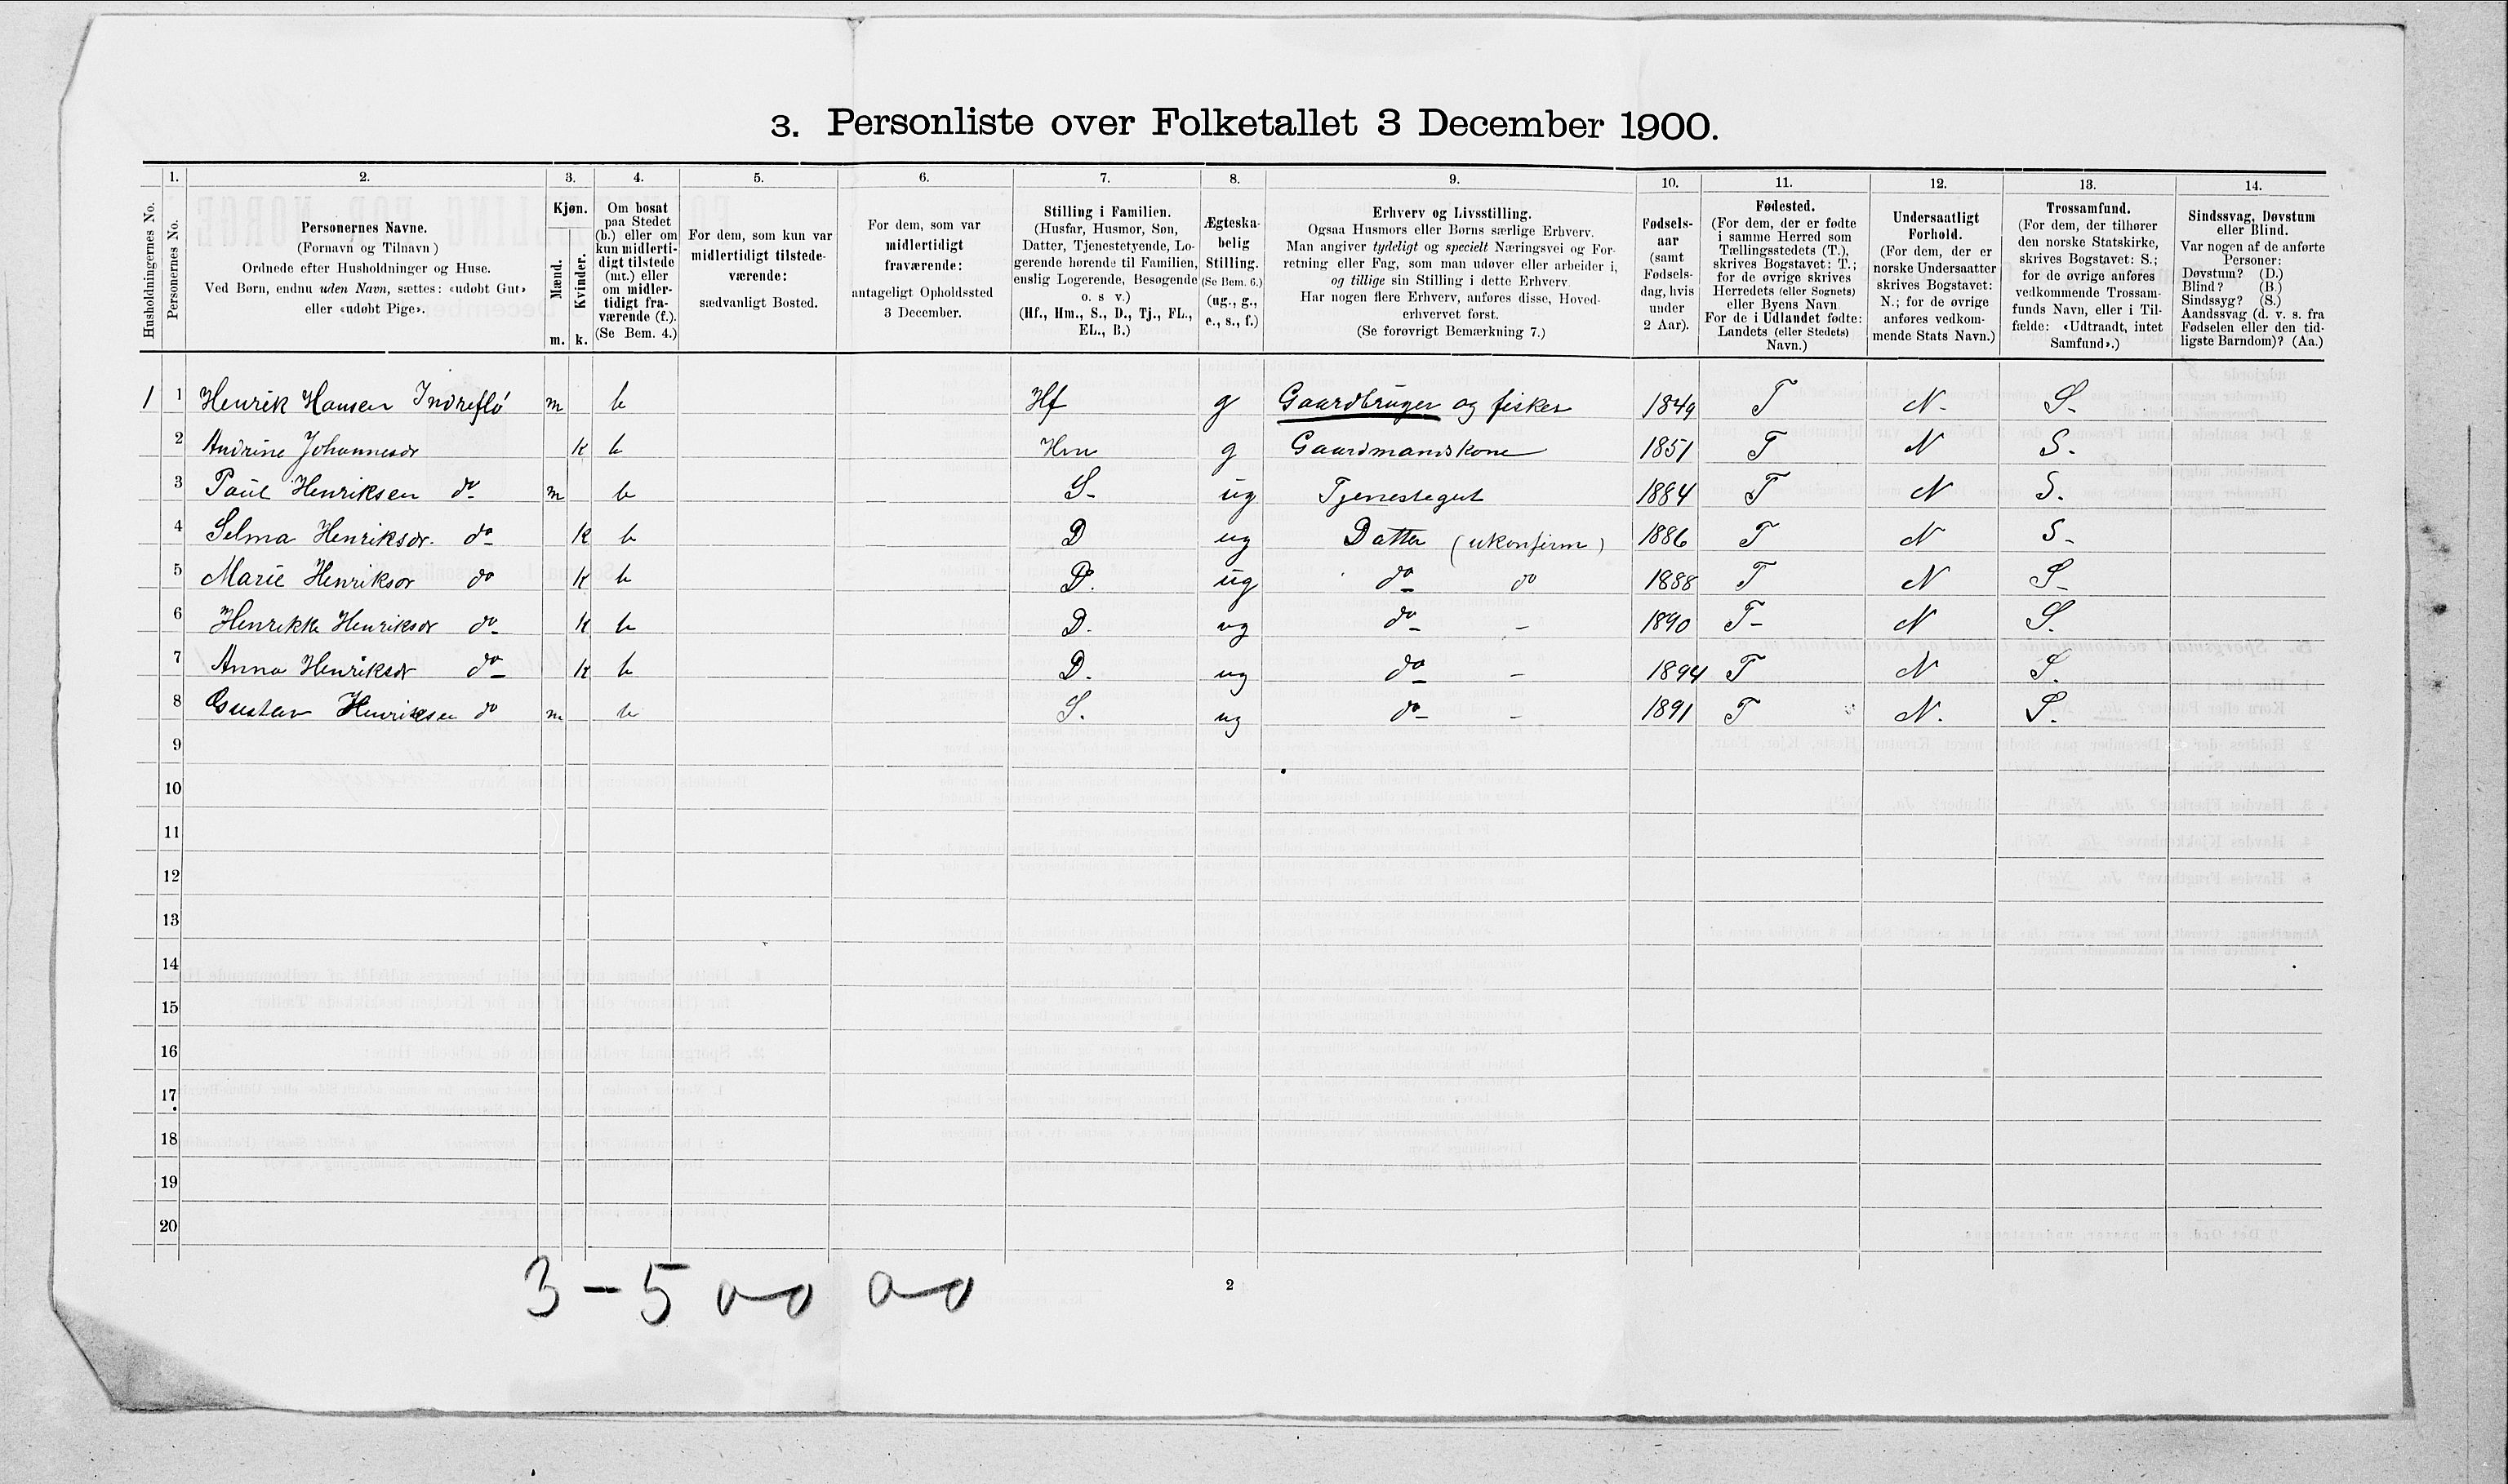 3. Personliste over Folketallet 3 December 1900.
Husholdningernes No.
1.
Personernes No.
2.
Personernes Navne.
(Fornavn og Tilnavn)
Ordnede efter Husholdninger og Huse.
Ved Børn, endnu uden Navn, sættes: «udøbt Gut»
eller «udøbt Pige».
3.
Kjøn.
Mænd.
Kvinder.
m. k.
4.
Om bosat
paa Stedet
(b.) eller om
kun midlerti-
digt tilstede
(mt.) eller
om midler-
tidigt fra-
værende (f.).
(Se Bem. 4.)
5.
For dem, som kun var
midlertidigt tilstede-
værende:
sædvanligt Bosted.
6.
For dem, som var
midlertidigt
fraværende:
antageligt Opholdssted
3 December.
7.
Stilling i Familien.
(Husfar, Husmor, Søn,
Datter, Tjenestetyende, Lo-
gerende hørende til Familien,
enslig Logerende, Besøgende
o. s v.)
(Hf., Hm., S., D., Tj., FL.,
EL., B.)
8.
Ægteska-
belig
Stilling.
(Se Bem. 6.)
(ug., g.,
e., s., f.)
9.
Erhverv og Livsstilling.
Ogsaa Husmors eller Børns særlige Erhverv.
Man angiver tydeligt og specielt Næringsvei og For-
retning eller Fag, som man udøver eller arbeider i,
og tillige sin Stilling i dette Erhverv.
Har nogen flere Erhverv, anføres disse, Hoved-
erhvervet først.
(Se forøvrigt Bemærkning 7.)
10.
Fødsels-
aar
(samt
Fødsels-
dag, hvis
under
2 Aar).
11.
Fødested.
(For dem, der er fødte
i samme Herred som
Tællingsstedets (T.),
skrives Bogstavet: T.;
for de øvrige skrives
Herredets (eller Sognets)
eller Byens Navn
For de i Udlandet fødte:
Landets (eller Stedets)
Navn.)
12.
Undersaatligt
Forhold.
(For dem, der er
norske Undersaatter
skrives Bogstavet:
N.; for de øvrige
anføres vedkom-
mende Stats Navn.)
13.
Trossamfund.
(For dem, der tilhører
den norske Statskirke,
skrives Bogstavet: S.;
for de øvrige anføres
vedkommende Trossam-
funds Navn, eller i Til-
fælde: «Udtraadt, intet
Samfund».)
14.
Sindssvag, Døvstum
eller Blind.
Var nogen af de anførte
Personer:
Døvstum? (D.)
Blind? (B.)
Sindssyg? (S.)
Aandssvag (d. v. s. fra
Fødselen eller den tid-
ligste Barndom)? (Aa.)
1 1 Henrik Hansen Indreflø m b Hf g Gaardbruger og fisker 1849 T N. S.
2 Andrine Johannesdr k b Hm g Gaardmandskone 1851 T N S.
3 Paul Henriksen do m b S. ug Tjenestegut 1884 T N S.
4 Selma Henriksdr. do k b D ug Datter (ukonfirm) 1886 T N S.
5 Marie Henriksdr do k b D. ug do do 1888 T N S.
6 Henrikke Henriksdr do k b D. ug do - 1890 T N S.
7 Anna Henriksdr do k b D. ug do - 1894 T N S.
8 Gustav Henriksen do m b S. ug do - 1891 T N. S.
9
10
11
12
13
14
15
16
17
18
19
20
3-5
2